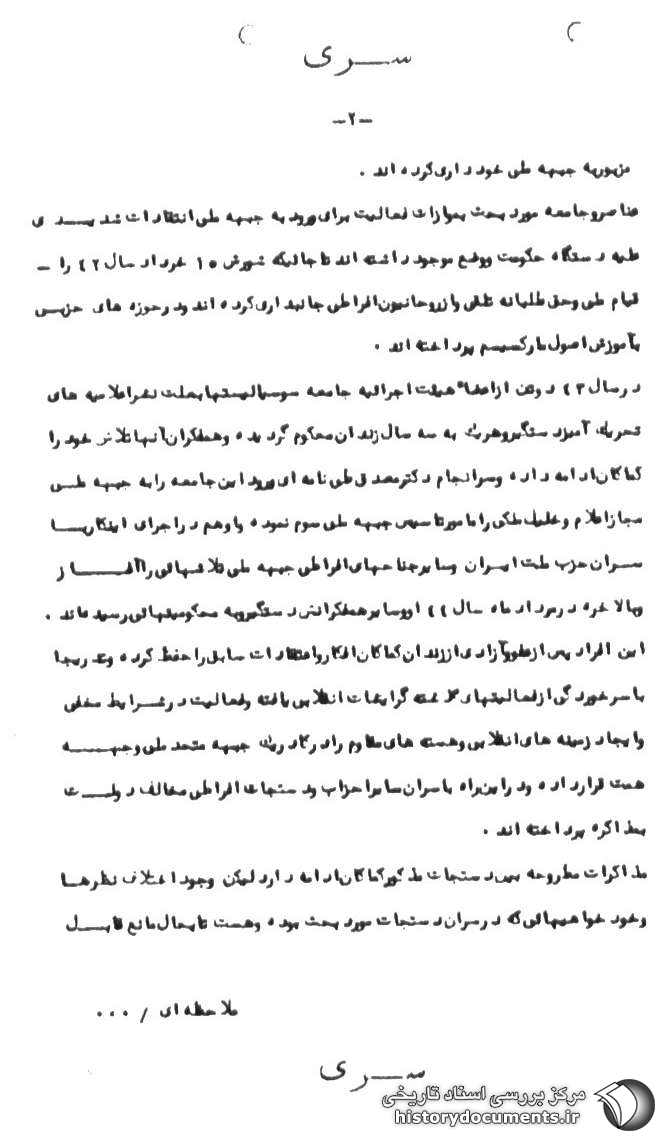 سری
-۲-
مزبور به جبهه ملی خودداری کرده اند .
عناصر و جامعه مورد بحث بموازات فعالیت برای ورود به جبهه ملی انتقادات شدیدی
علیه دستگاه حکومت و وضع موجود داشته اند تا جائیکه شورش ۱۵ خرداد سال ۴۲ را -
قیام ملی و حق طلبانه تلقی و از روحانیون افراطی جانبداری کرده اند و در حوزه های حزبی
بآموزش اصول مارکسیسم پرداخته اند .
در سال ۴۳ دو تن از اعضاء هیئت اجرائیه جامعه سوسیالیستها بعلت نشر اعلامیه های
تحریک آمیز دستگیر و هریک به سه سال زندان محکوم گردیده و همفکران آنها تلاش خود را
کماکان ادامه داده و سرانجام دکتر مصدق طی نامه ای ورود این جامعه را به جبهه ملی
مجاز اعلام و خلیل ملکی را مامور تاسیس جبهه ملی سوم نموده و او هم در اجرای اینکار با
سران حزب ملت ایران و سایر جناحهای افراطی جبهه ملی تلاشهائی را آغاز
و بالاخره در مرداد ماه سال ۴۴ او و سایر همفکرانش دستگیر و به محکومیتهائی رسیده اند .
این افراد پس از عفو و آزادی از زندان کماکان افکار و اعتقادات سابق را حفظ کرده و بتدریج با
با سرخوردگی از فعالیتهای گذشته گرایشات انقلابی یافته و فعالیت در شرایط مخفی
و ایجاد زمینه های انقلابی و هسته های مقاوم را در کادر یک جبهه متحد ملی وجهه
همت قرار داده و در این راه با سران سایر احزاب و دستجات افراطی مخالف دولت
بمذاکره پرداخته اند .
مذاکرات مطروحه بین دستجات مذکور کماکان ادامه دارد لیکن وجود اختلاف نظرها
و خودخواهیهائی که در سران دستجات مورد بحث بوده و هست تا بحال مانع قابل
ملاحظه ای / ۰۰۰
سری
مرکز بررسی اسناد تاریخی
historydocuments.ir